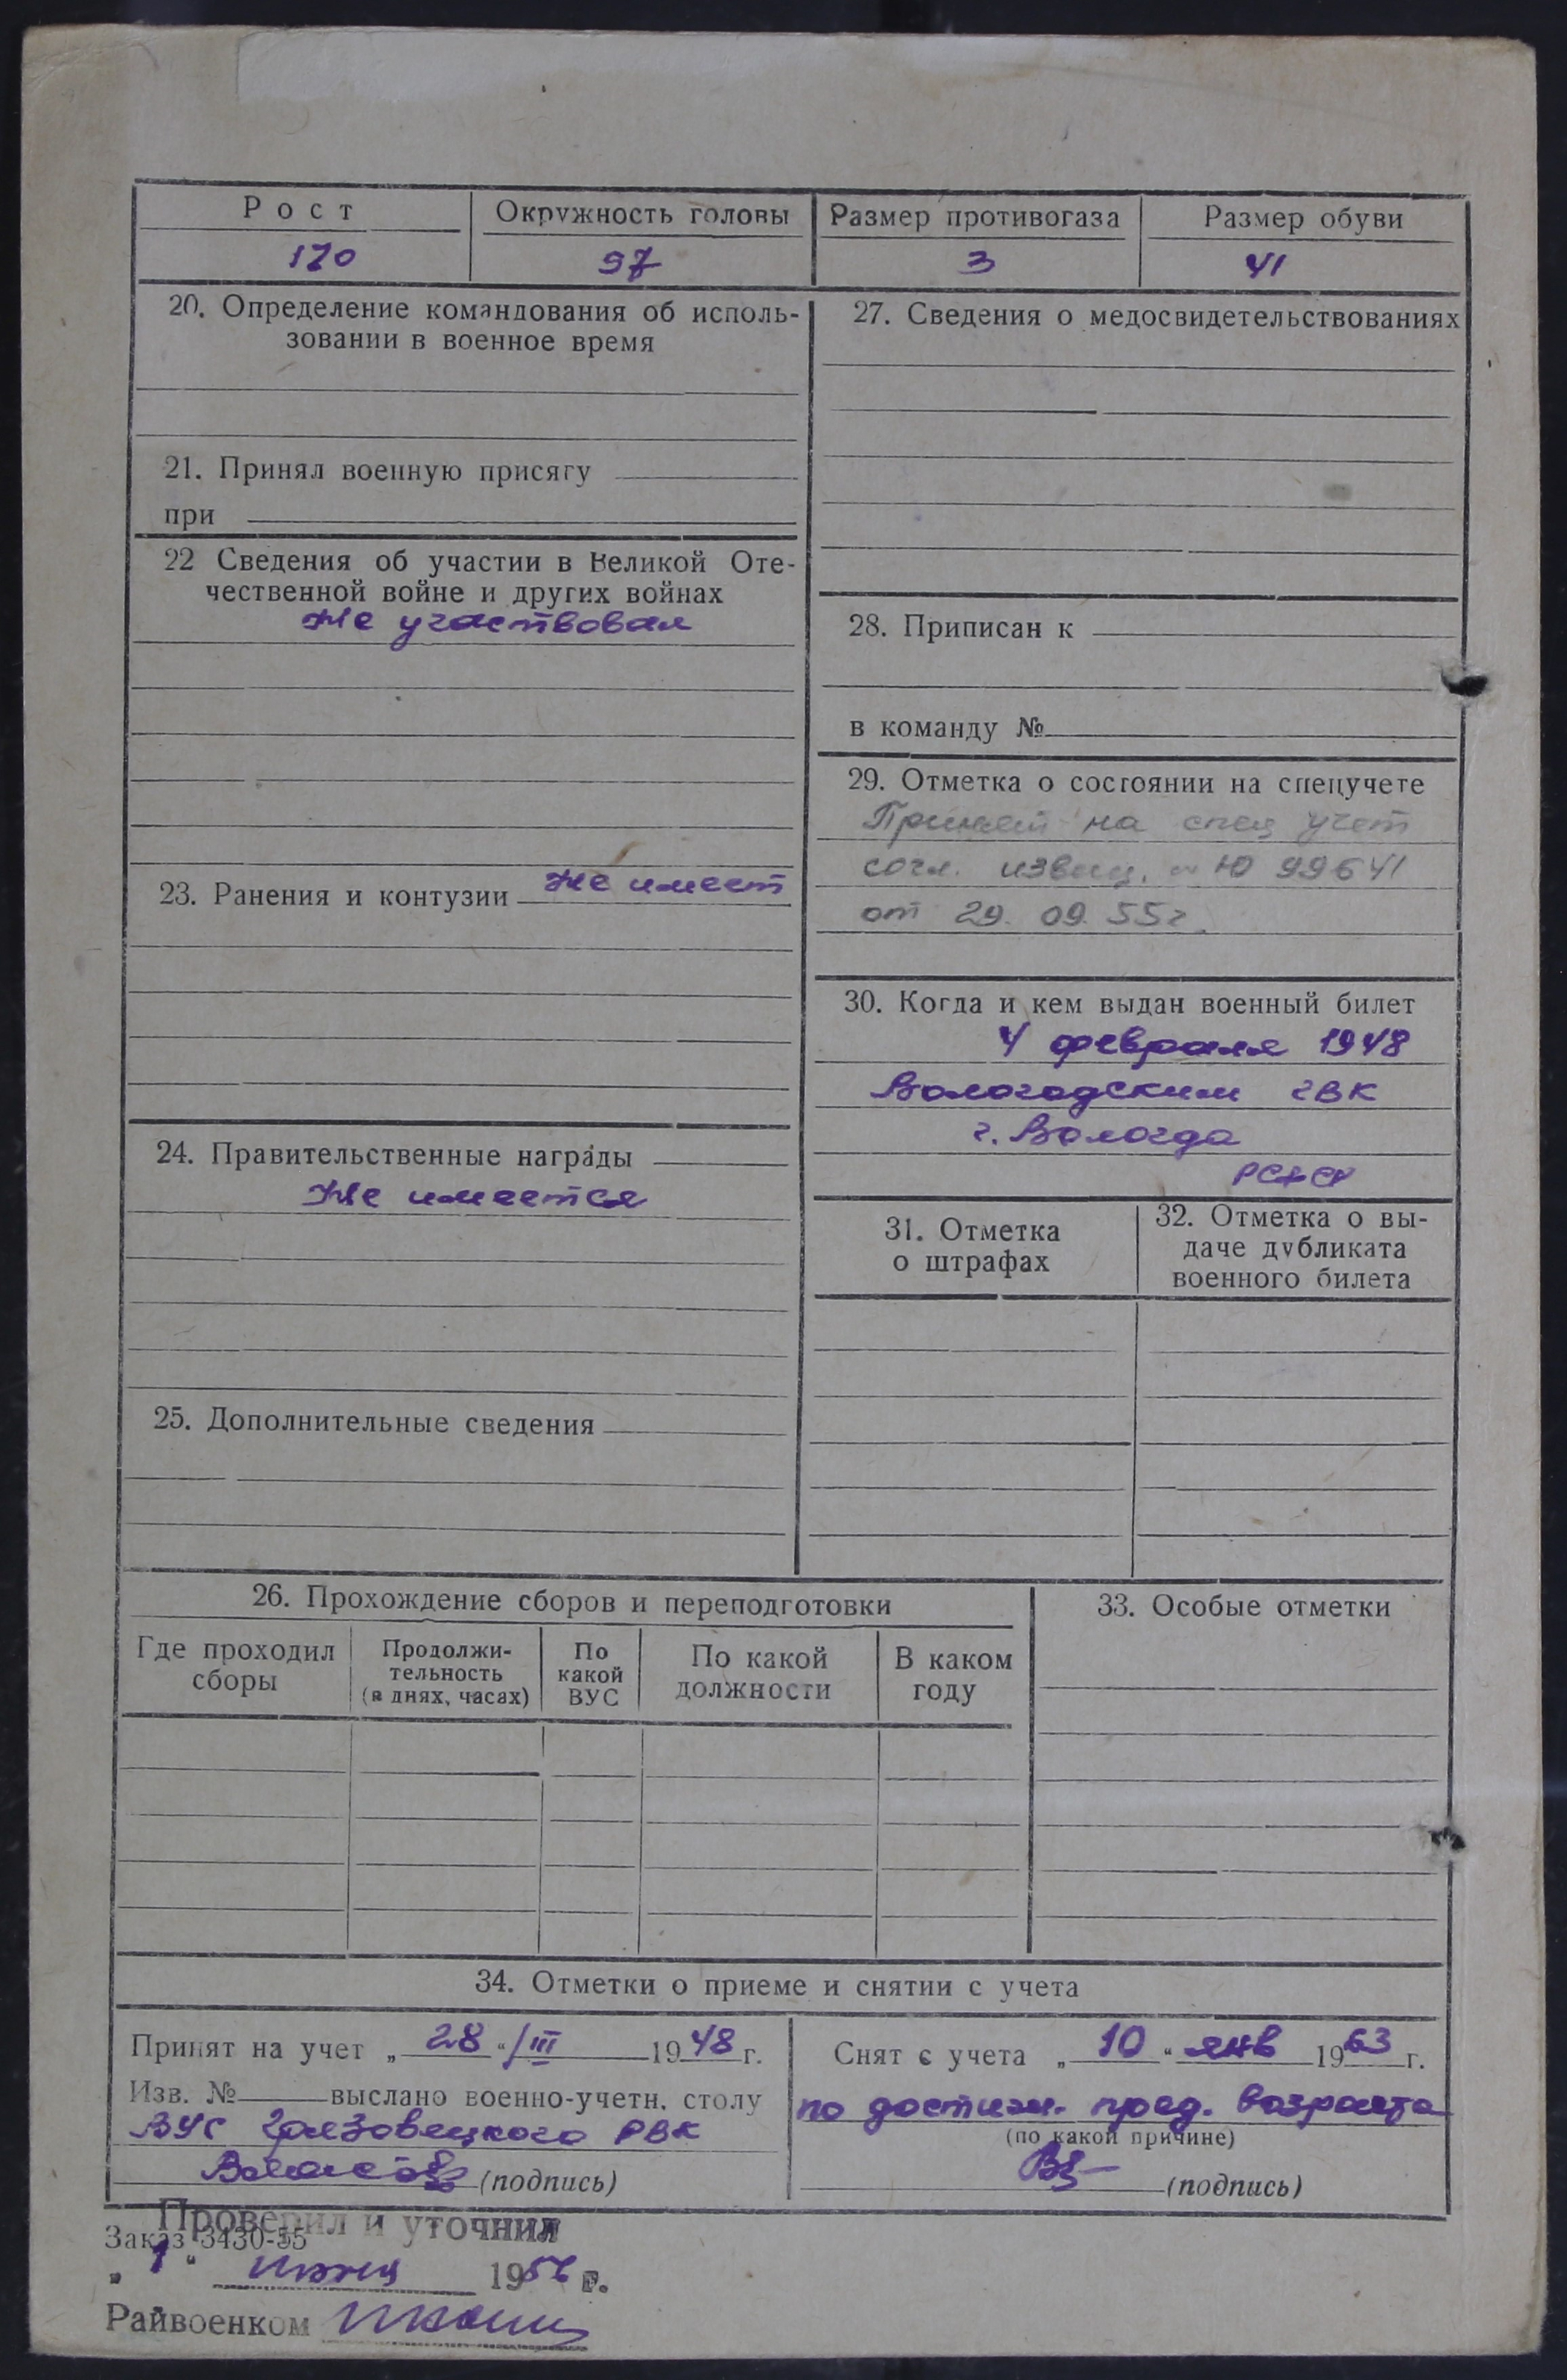 Рост
Окружность головы
Размер противогаза
Размер обуви
170
57
3
41
20. Определение командования об исполь-
зовании в военное время
21. Принял военную присягу
при
22 Сведения об участии в Великой Оте-
чественной войне и других войнах
Не участвовал
23. Ранения и контузии Не имеет
24. Правительственные награды
Не имеется
25. Дополнительные сведения
27. Сведения о медосвидетельствованиях
28. Приписан к
в команду №
29. Отметка о состоянии на спецучете
Принят на спец учет
согл. извещ. Ю 99641
от 29. 09. 55г.
30. Когда и кем выдан военный билет
4 февраля 1948
Вологодским ГВК
г. Вологда
РСФСР
31. Отметка
о штрафах
32. Отметка о вы-
даче дубликата
военного билета
26. Прохождение сборов и переподготовки
Где проходил
сборы
Продолжи-
тельность
(в днях, часах)
По
какой
ВУС
По какой
должности
В каком
году
33. Особые отметки
34. Отметки о приеме и снятии с учета
Принят на учет „28“/III 1948г.
Изв. № выслано военно-учетн. столу
ВУС Грязовецкого РВК
(подпись)
Снят с учета „10“ янв 1963г.
по достиж. пред. возраста
(по какой причине)
(подпись)
Проверил и уточнил
Заказ 3430-55
„1“ 1956 г.
Райвоенком